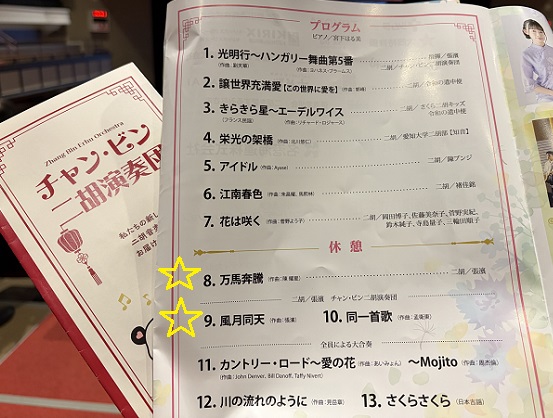 Zhang Bin Erhu Orchestra
チャン・ビン
二胡演奏団
私たちの新し
二胡音楽
お届け
プログラム
ピアノ/宮下はる美
1. 光明行〜ハンガリー舞曲第5番
(作曲:劉天華) (作曲:ヨハネス・ブラームス)
二胡/チャン・ビン二胡演奏団
2. 讓世界充满愛【この世界に愛を】
二胡/令和の道中使
3. きらきら星〜エーデルワイス
(フランス民謡) (作曲:リチャード・ロジャース)
二胡/さくら二胡キッズ
令和の道中使
4. 栄光の架橋
(作曲:北川悠仁)
二胡/愛知大学二胡部【知音】
5. アイドル (作曲:Ayase)
6. 江南春色 (作曲:朱昌耀、馬熙林)
7. 花は咲く (作曲:菅野よう子)
二胡/岡田博子、佐藤美奈子、菅野実紀、
鈴木純子、寺島量子、三輪田順子
休憩
8. 万馬奔騰 (作曲:陳耀星) 二胡/張濱
二胡/張濱 チャン・ビン二胡演奏団
9. 風月同天 (作曲:張濱) 10. 同一首歌 (作曲:孟衛東)
全員による大合奏
11. カントリー・ロード〜愛の花 (作曲:あいみょん) 〜Mojito (作曲:周杰倫)
(作曲:John Denver, Bill Danoff, Taffy Nivert)
12. 川の流れのように (作曲:見岳章) 13. さくらさくら (日本古謡)